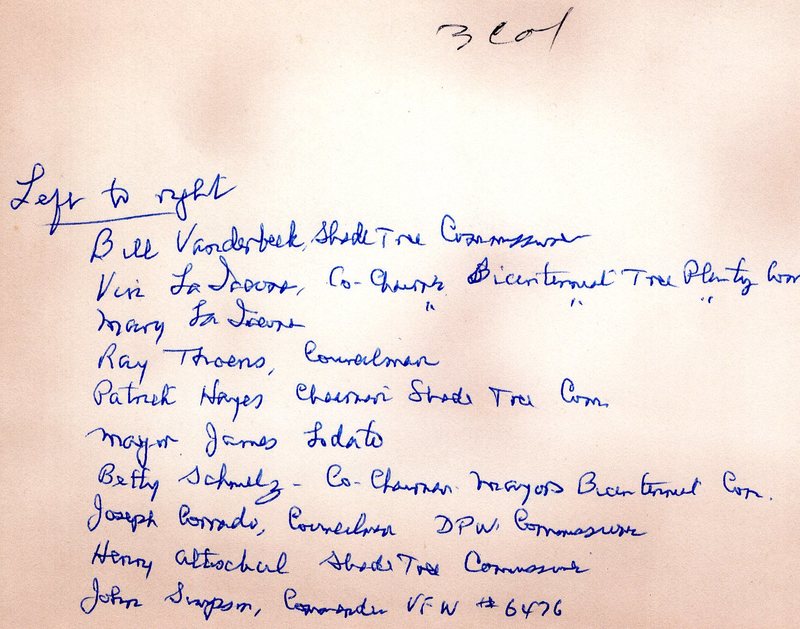 3 Col
Left to right
Bill Vanderbeek, Shade Tree Commissioner
Vin La Iacona, Co-Chairman Bicentennial Tree Planting Com
Mary La Iacona " " "
Ray Thoens, Councilman
Patrick Hayes Chairman Shade Tree Com.
Mayor James Lodato
Betty Schmelz - Co-Chairman Mayors Bicentennial Com.
Joseph Corrado, Councilman DPW Commissioner
Henry Altschul Shade Tree Commissioner
John Simpson, Commander VFW #6476